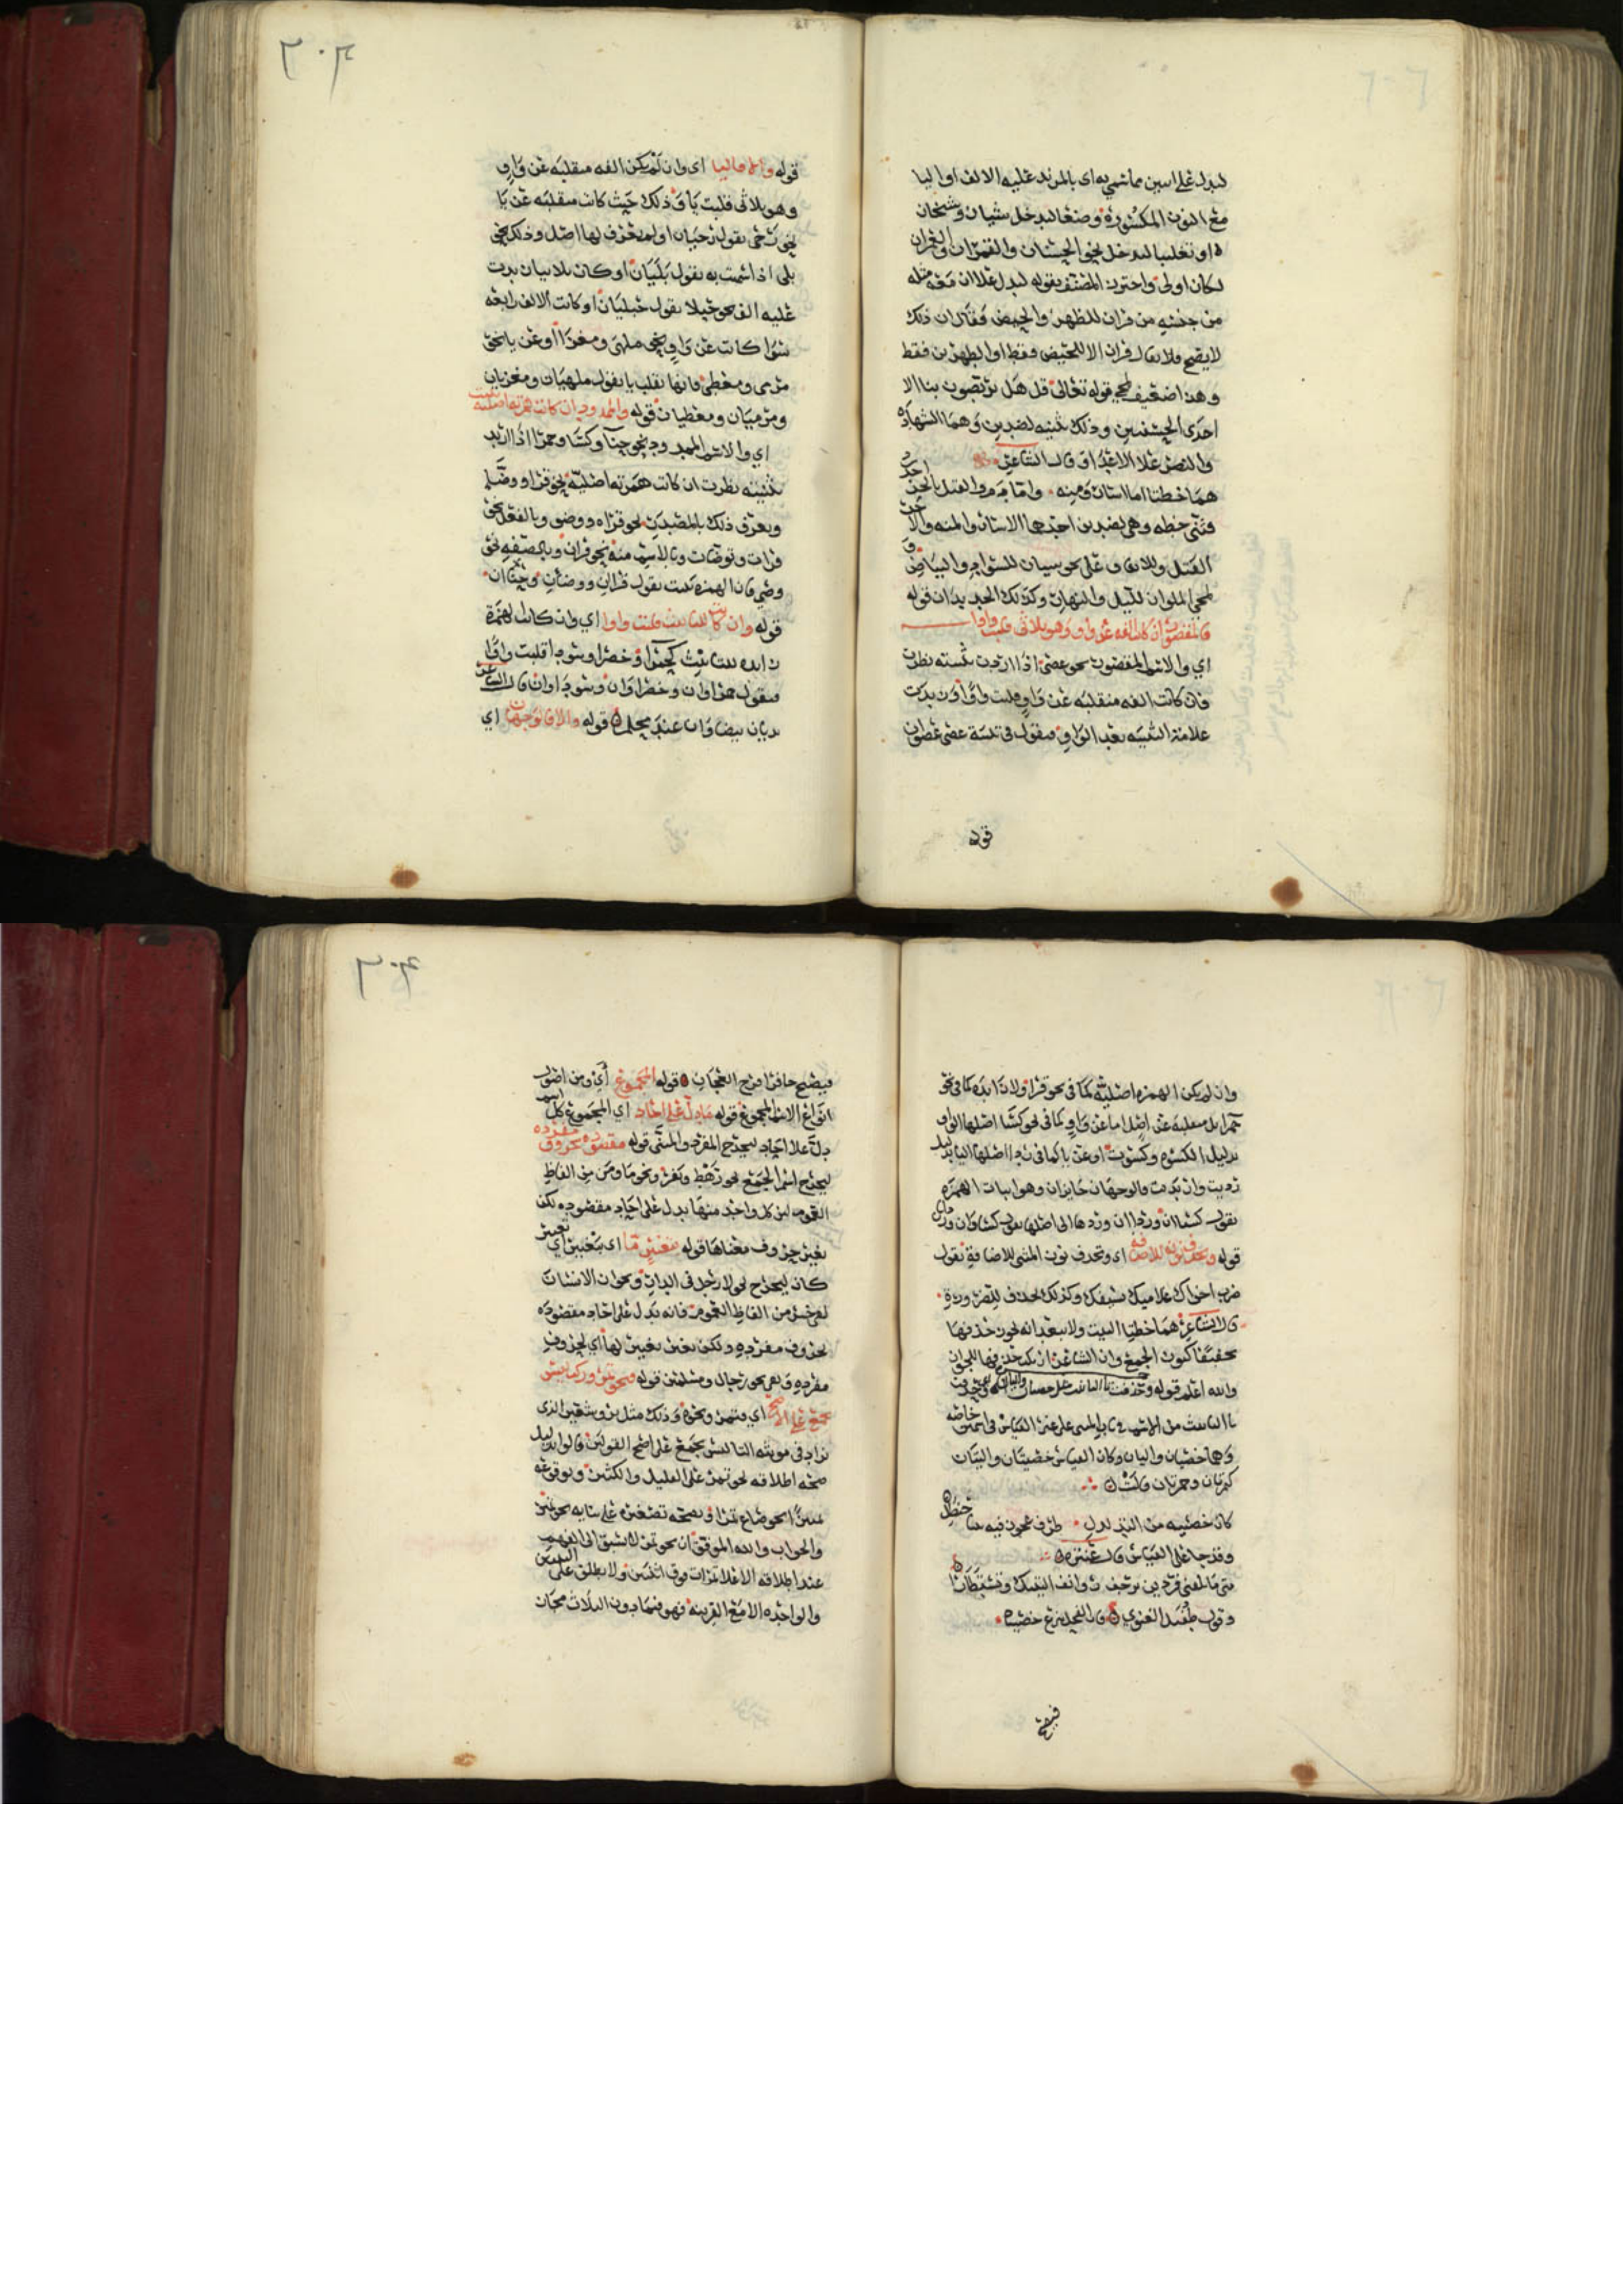 ليدل على اسين مما سمي به اي بالمزيد عليه الالف او اليا
مع النون المكسورة وضعا ليدخل شيان وشيخان
او تغليبا ليدخل نحو الحسنان والقمران والعمران
لكان اولى واحترز المصنف بقوله ليدل على ان معه مثله
من جنسه من قران للطهر والحيض فقال ان ذلك
لا يصح فلا يقال قران الا للحيضين فقط او الطهرين فقط
وهذا ضعيف لمجي قوله تعالى قل هل تربصون بنا الا
احدى الحسنيين وذلك تثنيه لضدين وهما الشهادة
والنصر على الاعدا وقال الشاعر
هما خطتا اما اسار ومنه واما دم والقتل بالحر اجدر
فثنى خطه وهي لضدين احدهما الاسار والمنه والاخر
القتل وللاتفاق على نحو سيان للسواد والبياض و
لمجي الملوان لليل والنهار وكذلك الجديدان قوله
فالمقصور ان كان الفه عن واو وهو ثلاثي قلبت واوا
اي والاسم المقصور نحو عصى اذا اردت تثنيته نظرت
فان كانت الفه منقلبه عن واو قلبت واوا وزيدت
علامة التثنيه بعد الواو فيقول في تثنية عصى عصوان
قوله
٢٠٣
قوله والا فاليا اي وان لم يكن الفه منقلبه عن واو
وهو ثلاثي قلبت يا وذلك حيث كانت منقلبه عن يا
نحو رحى يقول رحيان او لم يعرف لها اصل وذلك نحو
بلى اذا سمت به يقول بليان او كان ثلاثيا زيدت
عليه الف نحو حبلا يقول حبليان او كانت الالف رابعه
سوا كانت عن واو نحو ملهى ومغزا او عن يا نحو
مرمى ومعطى فانها تقلب يا يقول ملهيان ومغزيان
ومرميان ومعطيان قوله والممدود ان كانت همزته اصليه تثبت
اي والاسم الممدود نحو حنا وكسا وحمرا اذا اريد
تثنيته نظرت ان كانت همزته اصليه نحو قرا ووضا
ويعرف ذلك بالمصدر نحو قراه ووضى وبالفعل نحو
قرات وتوضات وبالاسم منه نحو قران وبالصفه نحو
وضي فان الهمزه تثبت يقول قران ووضان وحنان
قوله وان كانت للتانيث قلبت واوا اي وان كانت الهمزة
زايده للتانيث كحمرا وخضرا وسودا قلبت واوا
فيقول حمراوان وخضراوان وسوداوان قال الشاعر
يديان بيضاوان عند محلم قوله والا فالوجهان اي
وان لم يكن الهمزه اصليه كما في نحو قرا ولا زايده كما في نحو
حمرا بل منقلبه عن اصل اما عن واو كما في نحو كسا اصلها الواو
بدليل الكسوه وكسوت او عن يا كما في ردا اصلها اليا بدليل
رديت وارتديت فالوجهان جايزان وهو اثبات الهمزه
يقول كساان ورداان وردها الى اصلها يقول كساوان ورداي
قوله وتحذف نونه للاضافه اي وتحذف نون المثنى للاضافة يقول
ضرب اخواك غلاميك سيفك وكذلك الحذف للضرورة
قال الشاعر هما خطتا البيت ولا يبعد انه يجوز حذفها
تخفيفا كنون الجمع وان الشاعر انما حذفها للجواز
والله اعلم قوله وحذفت تا التانيث في خصيان واليان اي وحذفت
تا التانيث من الاسم في المثنى على غير القياس في اسمين خاصه
وهما خصيان واليان وكان القياس خصيتان واليتان
كمرتان وحمرتان قالت
كان خصييه من التدلدل ظرف عجوز فيه ثنتا حنظل
وقد جا على القياس قال عنتره
متى ما تلقني فردين ترجف روانف اليتيك وتستطارا
وقول طفيل الغنوي فان الفحل تنزع خصيتاه
فيصبح
٢٠٤
فيصبح جافرا قرح العجان قوله المجموع اي ومن اضرب
انواع الاسم المجموع قوله ما دل على احاد اي المجموع كل اسم
دل على احاد ليخرج المفرد والمثنى قوله مقصوده بحروف مفرده
ليخرج اسم الجمع نحو رهط ونفر ونحو ما ومن من الفاظ
العموم لان كل واحد منها يدل على احاد مقصوده لكن
بغير حروف معناها قوله بتغيير ما اي بتغيير اي تغيير
كان ليخرج نحو لا رجل في الدار ونحو ان الانسان
لفي خسر من الفاظ العموم فانه يدل على احاد مقصوده
بحروف مفرده ولكن بغير تغيير لها اي لحروف
مفرده ونعم نحو رجال ومسلمين قوله فنحو تمر وركب ليس
بجمع على الاصح اي فتمر ونحوه وذلك مثل بر وشعير الذي
يزاد في مؤنثه التا ليس بجمع على اصح القولين قالوا بدليل
صحه اطلاقه نحو تمر على القليل والكثير وبوقوعه
تمييزا نحو صاع تمرا وبصحه تصغيره على بنايه نحو تمير
والجواب والله الموفق ان نحو تمر لا يسبق الى الفهم
عند اطلاقه الا على تمرات فوق اثنتين ولا يطلق على التمرتين
والواحده الا مع القرينه فهو فيما دون الثلاث مجاز